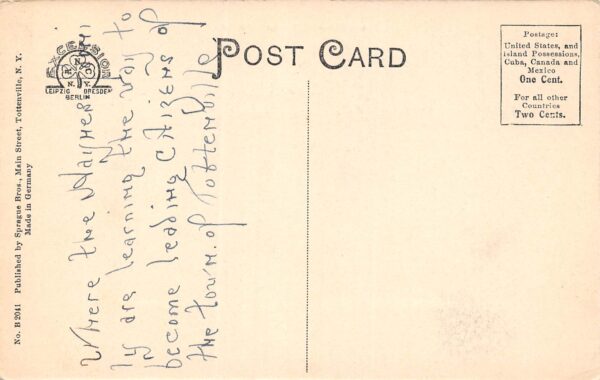 POST CARD
Postage:
United States, and
Island Possessions,
Cuba, Canada and
Mexico
One Cent.
For all other
Countries
Two Cents.
EXCELSIOR
N.
K. C.
N.Y.
LEIPZIG DRESDEN
BERLIN
No. B 2041 Published by Sprague Bros., Main Street, Tottenville, N. Y.
Made in Germany
Where the
ly are learning the way to
become leading citizens of
the town of Tottenville